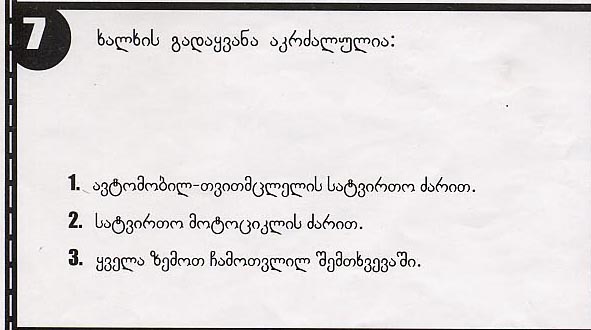 7
ხალხის გადაყვანა აკრძალულია:
1. ავტომობილ-თვითმცლელის სატვირთო ძარით.
2. სატვირთო მოტოციკლის ძარით.
3. ყველა ზემოთ ჩამოთვლილ შემთხვევაში.